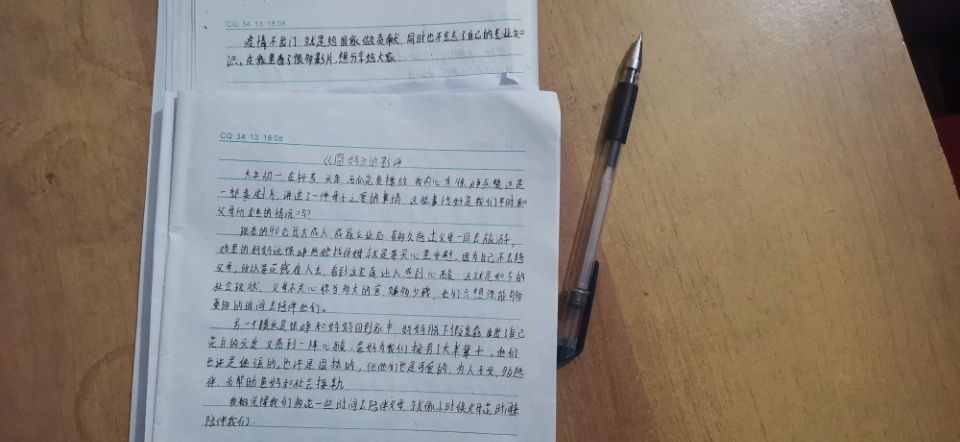 CQ 34 13 18 08
疫情不出门 就是给国家做贡献 同时也不要忘了自己的专业知
识。在家里看了很多影片,想分享给大家
CQ 34 13 18 08
《囧妈》的影评
大年初一 在抖音、头条 西瓜免费播放 我内心为徐峥点赞 这是
一部喜剧片,讲述了一件母子之爱的事情 这些事恰好是我们平时和
父母所发生的情况吗?
现在的90后长大成人 成家立业后 有多久陪过父母一同去旅游
戏里的
就是 心里 因为自己不去陪
父母, 花钱雇人去 看到这里 让人感到心酸 这就是如今的
社会现状 父母不关心你当多大的官 赚多少钱, 他们只想你能够
更多的时间去陪伴他们。
另一个镜头是徐峥和妈妈回到家中, 妈妈脱下假发 自己
花白的头发 又感到一阵心酸, 爸妈为我们操劳了大半辈子, 他们
也许是倔强的, 也许是固执的, 但他们也是可爱的, 为人子女, 多陪
伴, 多帮助爸妈和社会接轨
我 觉得我们多花一些时间去陪伴父母 就像小时候父母花时间
陪伴我们。